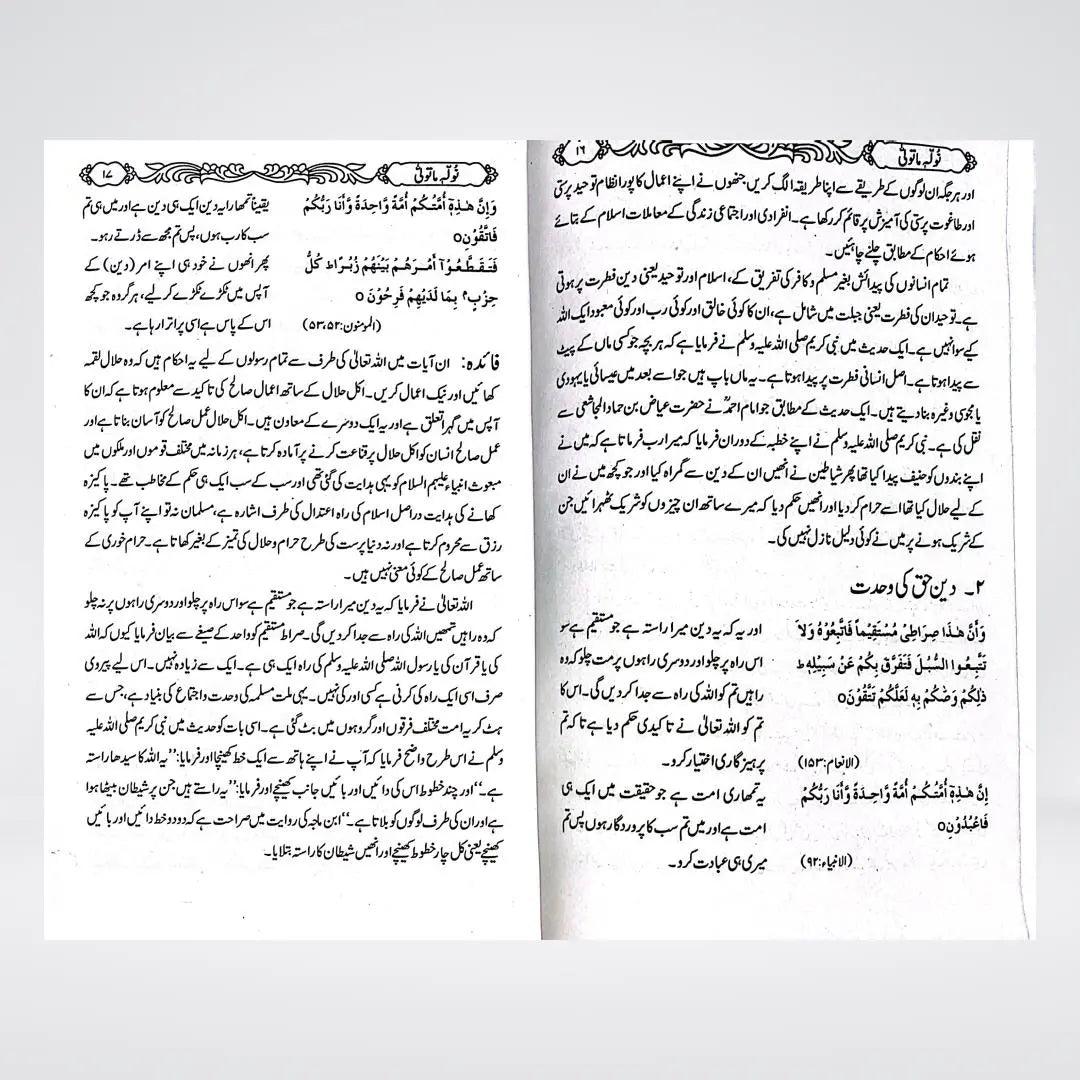 نُولِّہٖ مَاتَوَلّٰی
۱۶
اور ہر جگہ ان لوگوں کے طریقے سے اپنا طریقہ الگ کریں جنھوں نے اپنے اعمال کا پورا نظام توحید پرستی
اور طاغوت پرستی کی آمیزش پر قائم کر رکھا ہے۔ انفرادی اور اجتماعی زندگی کے معاملات اسلام کے بتائے
ہوئے احکام کے مطابق چلنے چاہئیں۔
تمام انسانوں کی پیدائش بغیر مسلم و کافر کی تفریق کے، اسلام اور توحید یعنی دین فطرت پر ہوتی
ہے۔ توحید ان کی فطرت یعنی جبلت میں شامل ہے، ان کا کوئی خالق اور کوئی رب اور کوئی معبود ایک اللہ
کے سوا نہیں ہے۔ ایک حدیث میں نبی کریم صلی اللہ علیہ وسلم نے فرمایا ہے کہ ہر بچہ جو کسی ماں کے پیٹ
سے پیدا ہوتا ہے۔ اصل انسانی فطرت پر پیدا ہوتا ہے۔ یہ ماں باپ ہیں جو اسے بعد میں عیسائی یا یہودی
یا مجوسی وغیرہ بنا دیتے ہیں۔ ایک حدیث کے مطابق جو امام احمدؒ نے حضرت عیاض بن حماد المجاشعی سے
نقل کی ہے۔ نبی کریم صلی اللہ علیہ وسلم نے اپنے خطبہ کے دوران فرمایا کہ میرا رب فرماتا ہے کہ میں نے
اپنے بندوں کو حنیف پیدا کیا تھا پھر شیاطین نے انھیں ان کے دین سے گمراہ کیا اور جو کچھ میں نے ان
کے لیے حلال کیا تھا اسے حرام کر دیا اور انھیں حکم دیا کہ میرے ساتھ ان چیزوں کو شریک ٹھہرائیں جن
کے شریک ہونے پر میں نے کوئی دلیل نازل نہیں کی۔
۲۔ دین حق کی وحدت
وَأَنَّ هٰذَا صِرَاطِيْ مُسْتَقِيْماً فَاتَّبِعُوْهُ وَلاَ
تَتَّبِعُوا السُّبُلَ فَتَفَرَّقَ بِكُمْ عَنْ سَبِيْلِهٖ ط
ذٰلِكُمْ وَصّٰكُمْ بِهٖ لَعَلَّكُمْ تَتَّقُوْنَ○
(الانعام: ۱۵۳)
اور یہ کہ یہ دین میرا راستہ ہے جو مستقیم ہے سو
اس راہ پر چلو اور دوسری راہوں پر مت چلو کہ وہ
راہیں تم کو اللہ کی راہ سے جدا کر دیں گی۔ اس کا
تم کو اللہ تعالیٰ نے تاکیدی حکم دیا ہے تاکہ تم
پرہیزگاری اختیار کرو۔
إِنَّ هٰذِهٖ أُمَّتُكُمْ أُمَّةً وَّاحِدَةً وَّأَنَا رَبُّكُمْ
فَاعْبُدُوْنِ○
(الانبیاء: ۹۲)
یہ تمھاری امت ہے جو حقیقت میں ایک ہی
امت ہے اور میں تم سب کا پروردگار ہوں پس تم
میری ہی عبادت کرو۔
نُولِّہٖ مَاتَوَلّٰی
۱۷
وَإِنَّ هٰذِهٖ أُمَّتُكُمْ أُمَّةً وَّاحِدَةً وَّأَنَا رَبُّكُمْ
فَاتَّقُوْنِ○
فَتَقَطَّعُوْآ أَمْرَهُمْ بَيْنَهُمْ زُبُرًا ط كُلُّ
حِزْبٍ ۢ بِمَا لَدَيْهِمْ فَرِحُوْنَ ○
(المومنون: ۵۲، ۵۳)
یقیناً تمھارا یہ دین ایک ہی دین ہے اور میں ہی تم
سب کا رب ہوں، پس تم مجھ سے ڈرتے رہو۔
پھر انھوں نے خود ہی اپنے امر (دین) کے
آپس میں ٹکڑے ٹکڑے کر لیے، ہر گروہ جو کچھ
اس کے پاس ہے اسی پر اترا رہا ہے۔
فائدہ: ان آیات میں اللہ تعالیٰ کی طرف سے تمام رسولوں کے لیے یہ احکام ہیں کہ وہ حلال لقمہ
کھائیں اور نیک اعمال کریں۔ اکل حلال کے ساتھ اعمال صالح کی تاکید سے معلوم ہوتا ہے کہ ان کا
آپس میں گہرا تعلق ہے اور یہ ایک دوسرے کے معاون ہیں۔ اکل حلال عمل صالح کو آسان بناتا ہے اور
عمل صالح انسان کو اکل حلال پر قناعت کرنے پر آمادہ کرتا ہے، ہر زمانہ میں مختلف قوموں اور ملکوں میں
مبعوث انبیاء علیہم السلام کو یہی ہدایت کی گئی تھی اور سب کے سب ایک ہی حکم کے مخاطب تھے۔ پاکیزہ
کھانے کی ہدایت دراصل اسلام کی راہ اعتدال کی طرف اشارہ ہے، مسلمان نہ تو اپنے آپ کو پاکیزہ
رزق سے محروم کرتا ہے اور نہ دنیا پرست کی طرح حرام و حلال کی تمیز کے بغیر کھاتا ہے۔ حرام خوری کے
ساتھ عمل صالح کے کوئی معنی نہیں ہیں۔
اللہ تعالیٰ نے فرمایا کہ یہ دین میرا راستہ ہے جو مستقیم ہے سو اس راہ پر چلو اور دوسری راہوں پر نہ چلو
کہ وہ راہیں تمھیں اللہ کی راہ سے جدا کر دیں گی۔ صراط مستقیم کو واحد کے صیغے سے بیان فرمایا کیوں کہ اللہ
کی یا قرآن کی یا رسول اللہ صلی اللہ علیہ وسلم کی راہ ایک ہی ہے۔ ایک سے زیادہ نہیں۔ اس لیے پیروی
صرف اسی ایک راہ کی کرنی ہے کسی اور کی نہیں۔ یہی ملت مسلمہ کی وحدت و اجتماع کی بنیاد ہے، جس سے
ہٹ کر یہ امت مختلف فرقوں اور گروہوں میں بٹ گئی ہے۔ اسی بات کو حدیث میں نبی کریم صلی اللہ علیہ
وسلم نے اس طرح واضح فرمایا کہ آپ نے اپنے ہاتھ سے ایک خط کھینچا اور فرمایا: ”یہ اللہ کا سیدھا راستہ
ہے۔“ اور چند خطوط اس کی دائیں اور بائیں جانب کھینچے اور فرمایا: ”یہ راستے ہیں جن پر شیطان بیٹھا ہوا
ہے اور ان کی طرف لوگوں کو بلاتا ہے۔“ ابن ماجہ کی روایت میں صراحت ہے کہ دو دو خط دائیں اور بائیں
کھینچے یعنی کل چار خطوط کھینچے اور انھیں شیطان کا راستہ بتلایا۔